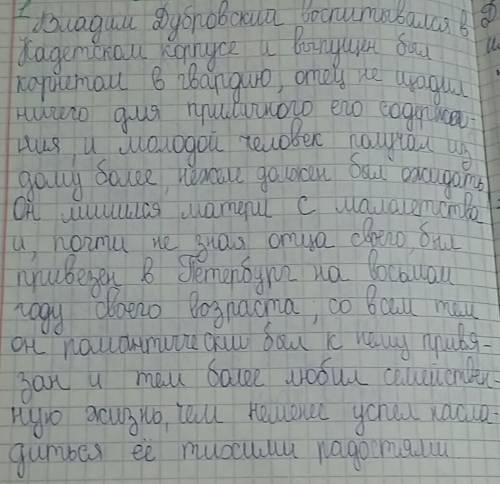 Владим Дубровский воспитывался в
Кадетском корпусе и выпущен был
корнетом в гвардию, отец не щадил
ничего для приличного его содржа-
ния, и молодой человек получал из
дому более, нежели должен был ожидать
Он лишился матери с малолетства
и, почти не зная отца своего, был
привезен в Петербург на восьмом
году своего возраста, со всем тем
он романтически был к нему привя-
зан и тем более любил семействен-
ную жизнь, чем неменее успел насла-
диться её тихими радостями